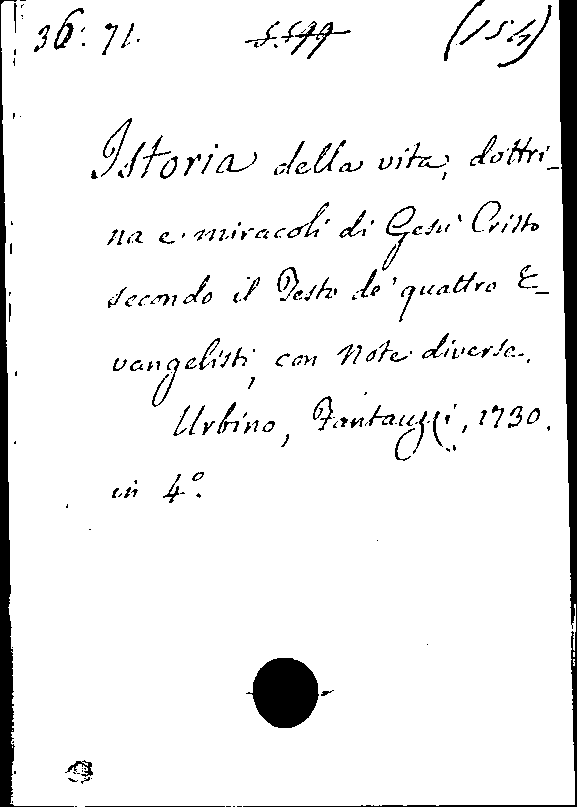 36. 71. S.S99 (154)
Istoria della vita, dottri-
na e miracoli di Gesù Cristo
secondo il Testo de' quattro E-
vangelisti, con Note diverse.
Urbino, Fantauzzi, 1730.
in 4°.